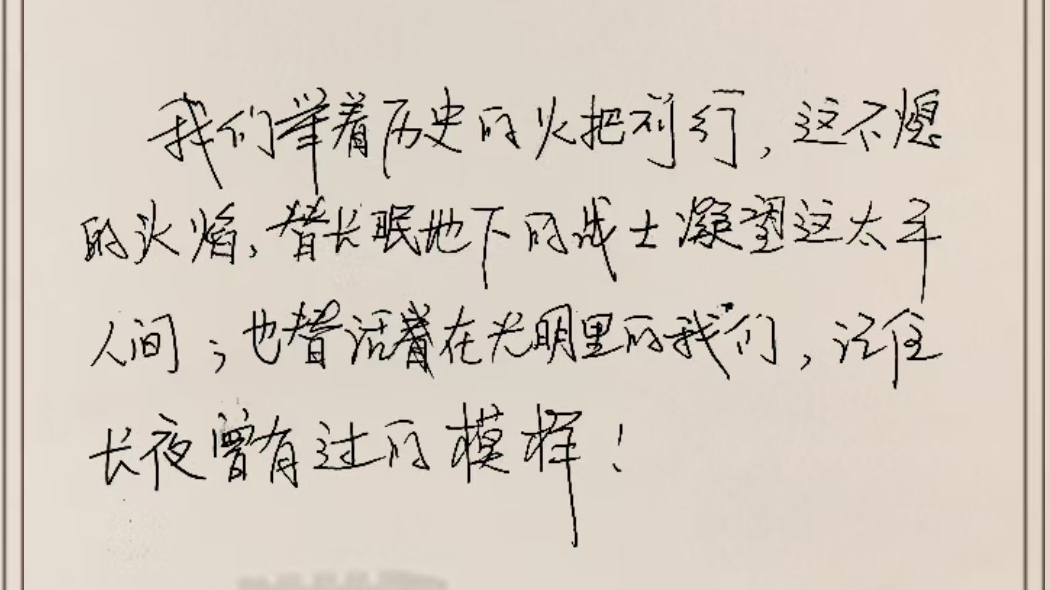 我们举着历史的火把前行，这不熄
的火焰，替长眠地下的战士凝望这太平
人间；也替活着在光明里的我们，记住
长夜曾有过的模样！